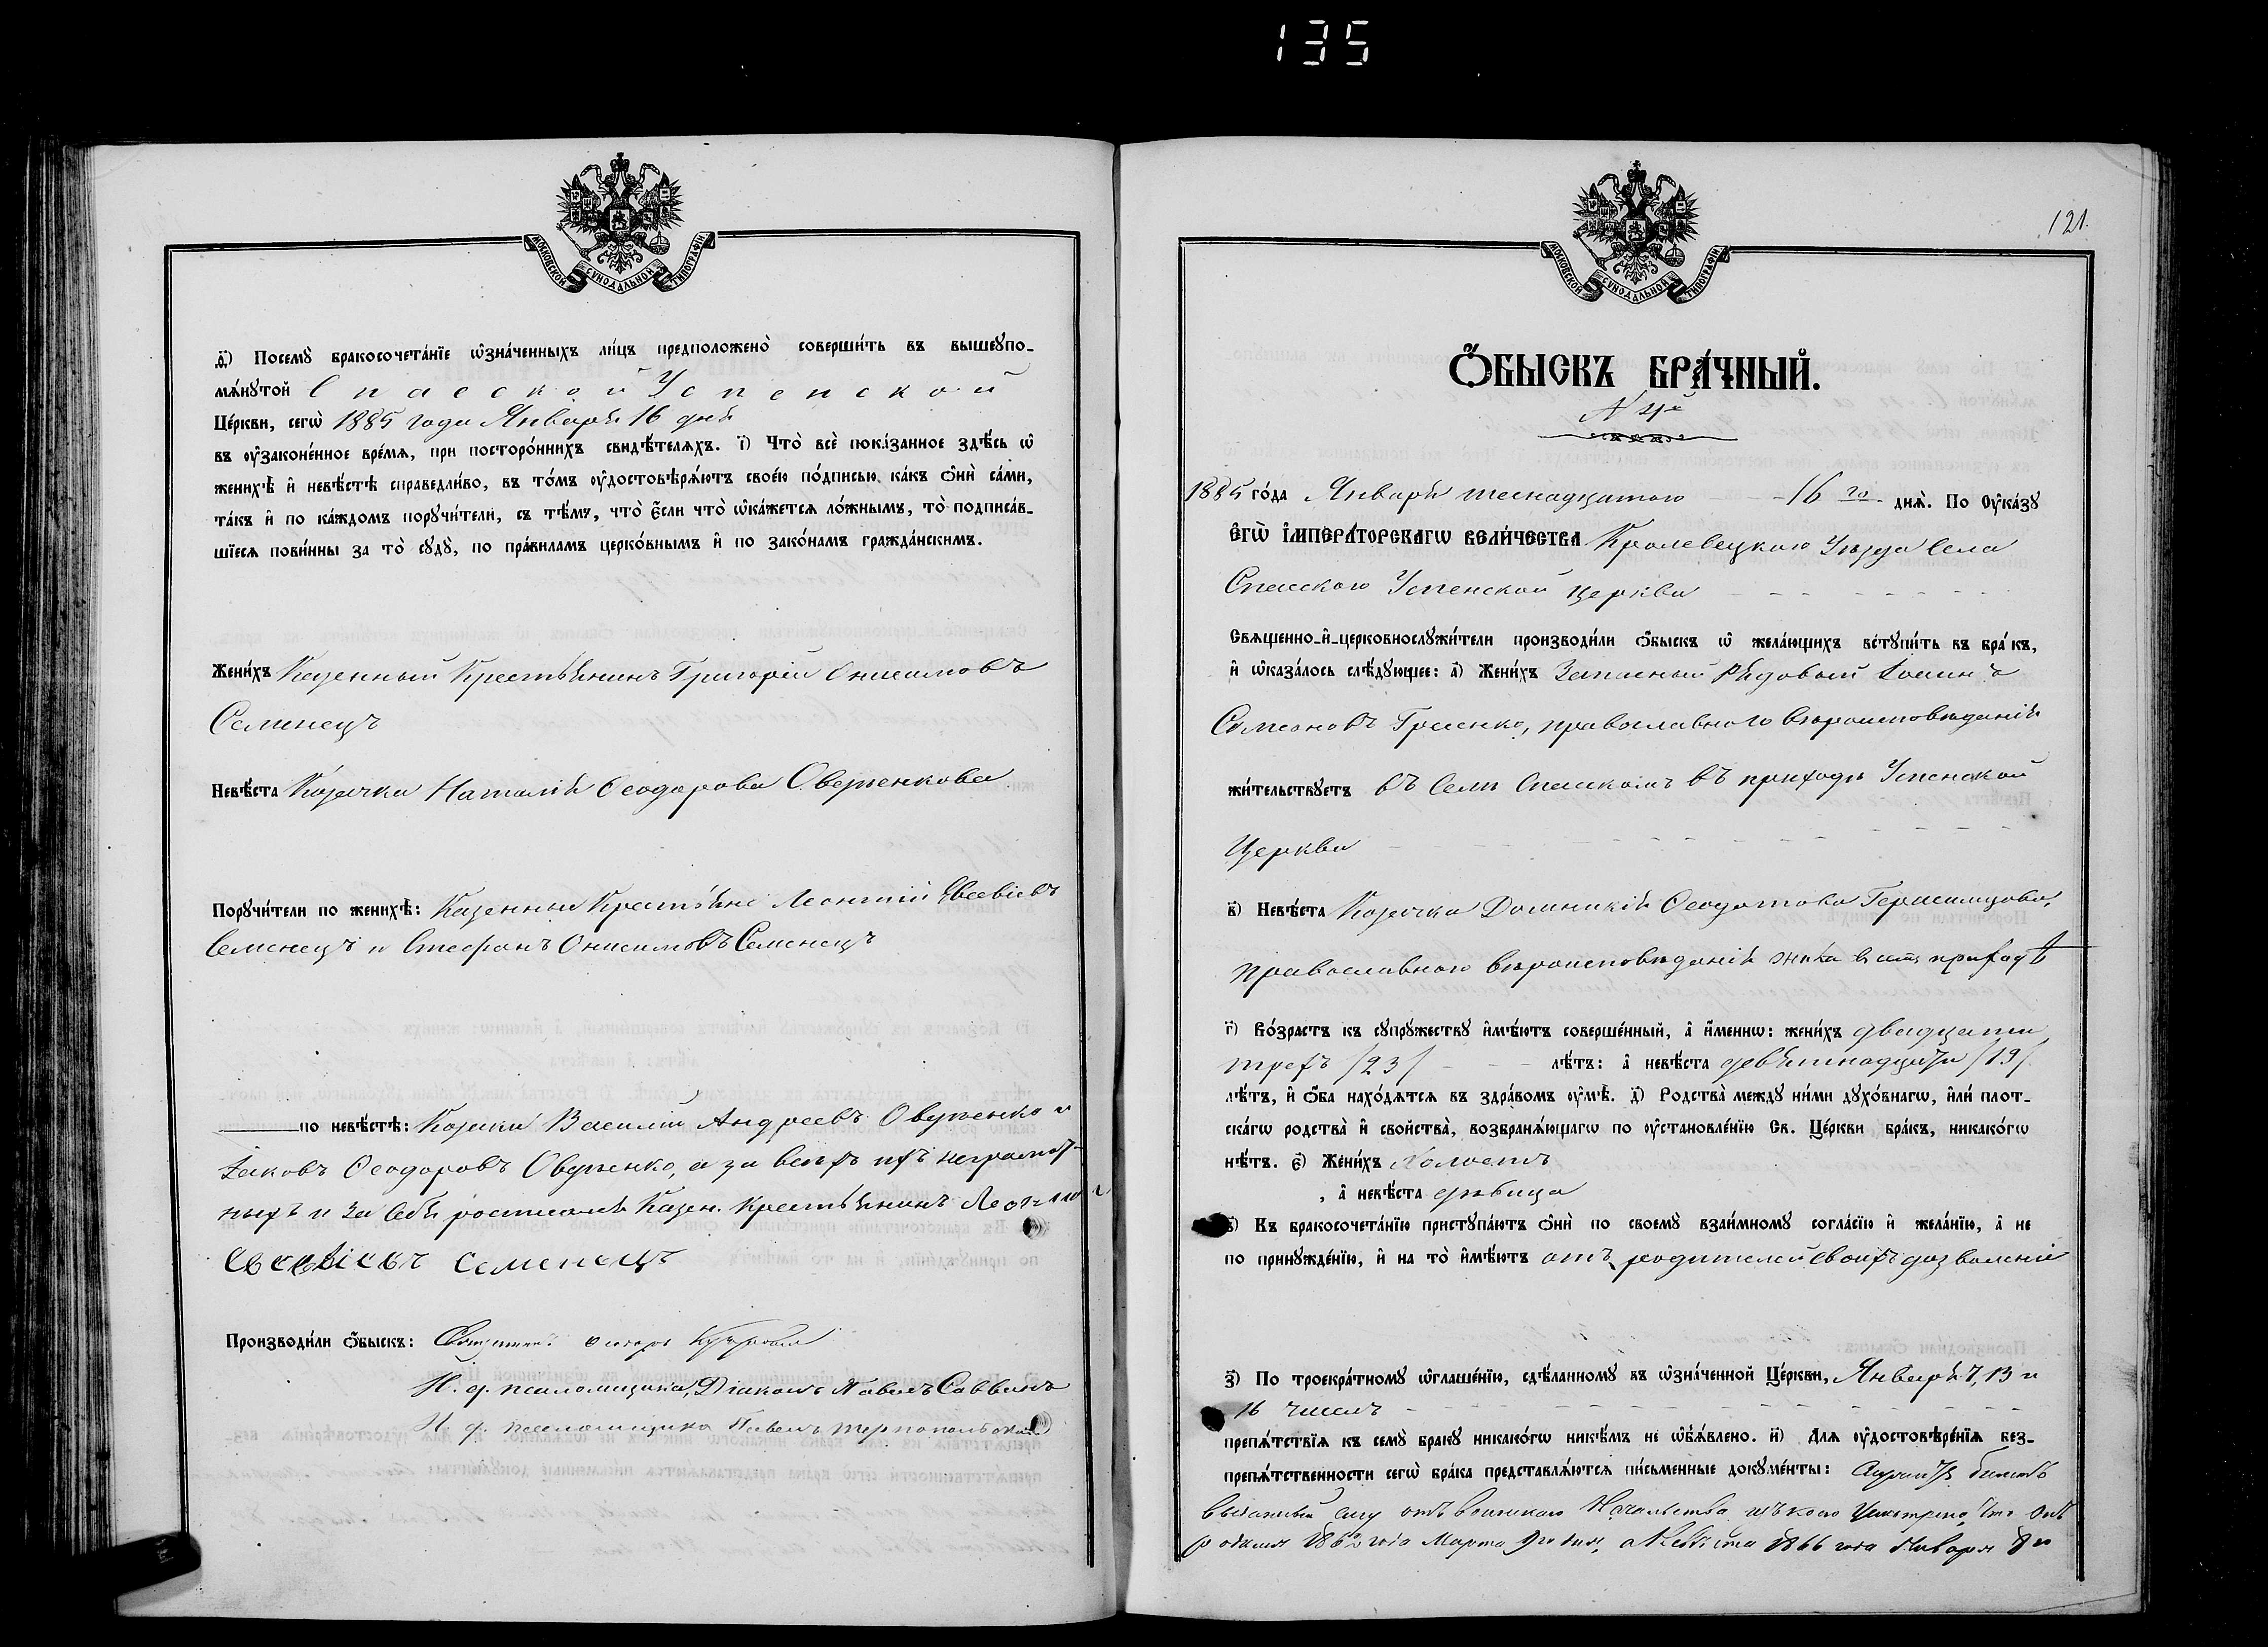 135
МОСКОВСКОЙ СѴНОДАЛЬНОЙ ТИПОГРАФІИ
ѳ҃) Посемꙋ̀ бракосочета́нїе ѡ҆зна́ченныхъ ли́цъ предположено̀ соверши́ть въ вышеꙋпо-
мѧ́нꙋтой Спасской Успенской
Це́ркви, сегѡ̀ 1885 года Января 16 дня
въ ᲂу҆законе́нное вре́мѧ, при посторо́ннихъ свидѣ́телѧхъ. і҃) Что̀ всѐ пока́занное здѣ́сь ѡ҆
женихѣ̀ и҆ невѣ́стѣ справедли́во, въ то́мъ ᲂу҆достовѣрѧ́ютъ свое́ю по́дписью ка́къ ѻ҆нѝ са́ми,
та́къ и҆ по ка́ждомъ порꙋчи́тели, съ тѣ́мъ, что̀ є҆́сли что̀ ѡ҆ка́жетсѧ ло́жнымъ, то̀ подписа́в-
шїесѧ пови́нны за то̀ сꙋдꙋ̀, по пра́виламъ церко́внымъ и҆ по зако́намъ гражда́нскимъ.
Жени́хъ Казенный Крестьянинъ Григорій Онисимовъ
Семенецъ
Невѣ́ста Козачка Наталія Ѳеодорова Оверенкова
Порꙋчи́тели по женихѣ̀: Казенные Крестьяне Леонтій Евсевіевъ
Семенецъ и Стефанъ Онисимовъ Семенецъ
по невѣ́стѣ: Козаки Василій Андреевъ и
Іаковъ Ѳеодоровъ а за всѣхъ ихъ неграмот-
ныхъ и за себя росписался Казен. Крестьянинъ Леонтій
Евсевіевъ Семенецъ
Производи́ли ѻ҆́быскъ: Священникъ
И. д. псаломщика, Діаконъ Павелъ Саввинъ
И. д. псаломщика Павелъ
121.
МОСКОВСКОЙ СѴНОДАЛЬНОЙ ТИПОГРАФІИ
Ѻ҆́БЫСКЪ БРА́ЧНЫЙ.
№
1885 го́да Января шеснадцатого 16 го днѧ̀. По Оу҆ка́зꙋ
Є҆ГѠ̀ І҆МПЕРА́ТОРСКАГѠ ВЕЛИ́ЧЕСТВА Кролевецкого Уѣзда Села
Спасского Успенской Церкви
Свѧщенно-и҆-церковнослꙋжи́тели производи́ли ѻ҆́быскъ ѡ҆ жела́ющихъ встꙋпи́ть въ бра́къ,
и҆ ѡ҆каза́лось слѣ́дꙋющее: а҃) Жени́хъ Запасный Рядовой Іоаннъ
Симеоновъ Гриенко, православного вѣроисповѣданія
жи́тельствꙋетъ въ Селѣ Спасскомъ въ приходѣ Успенской
Церкви
в҃) Невѣ́ста Козачка Домникія Ѳеодотова
православного вѣроисповѣданія приходѣ
г҃) Во́зрастъ къ сꙋпрꙋ́жествꙋ и҆мѣ́ютъ соверше́нный, а҆ и҆́меннѡ: жени́хъ двадцати
трехъ /23/ лѣ́тъ: а҆ невѣ́ста девятнадцати /19/
лѣ́тъ, и҆ ѻ҆́ба нахо́дѧтсѧ въ здра́вомъ ᲂу҆мѣ̀. д҃) Родства̀ междꙋ ни́ми дꙋхо́внагѡ, и҆лѝ плот-
ска́гѡ родства̀ и҆ сво́йства, возбранѧ́ющагѡ по ᲂу҆становле́нїю Св. Це́ркви бра́къ, никако́гѡ
нѣ́тъ. є҃) Жени́хъ Холостъ
, а҆ невѣ́ста дѣвица
ѕ҃) Къ бракосочета́нїю пристꙋпа́ютъ ѻ҆нѝ по своемꙋ̀ взаи́мномꙋ согла́сїю и҆ жела́нїю, а҆ не
по принꙋжде́нїю, и҆ на то̀ и҆мѣ́ютъ отъ родителей своихъ дозволеніе
з҃) По троекра́тномꙋ ѡ҆глаше́нїю, сдѣ́ланномꙋ въ ѡ҆зна́ченной Це́ркви, Января 7, 13 и
16 числъ
препѧ́тствїѧ къ семꙋ̀ бракꙋ никако́гѡ никѣ́мъ не ѡ҆б̾ѧ́влено. и҃) Длѧ ᲂу҆достовѣре́нїѧ без-
препѧ́тственности сегѡ̀ бра́ка представлѧ́ютсѧ пи́сьменные докꙋме́нты: билетъ
выданный ему отъ воинскаго Начальства изъ коего что онъ
родился 1862 года Марта дня, а Невѣста 1866 года Января 8 го